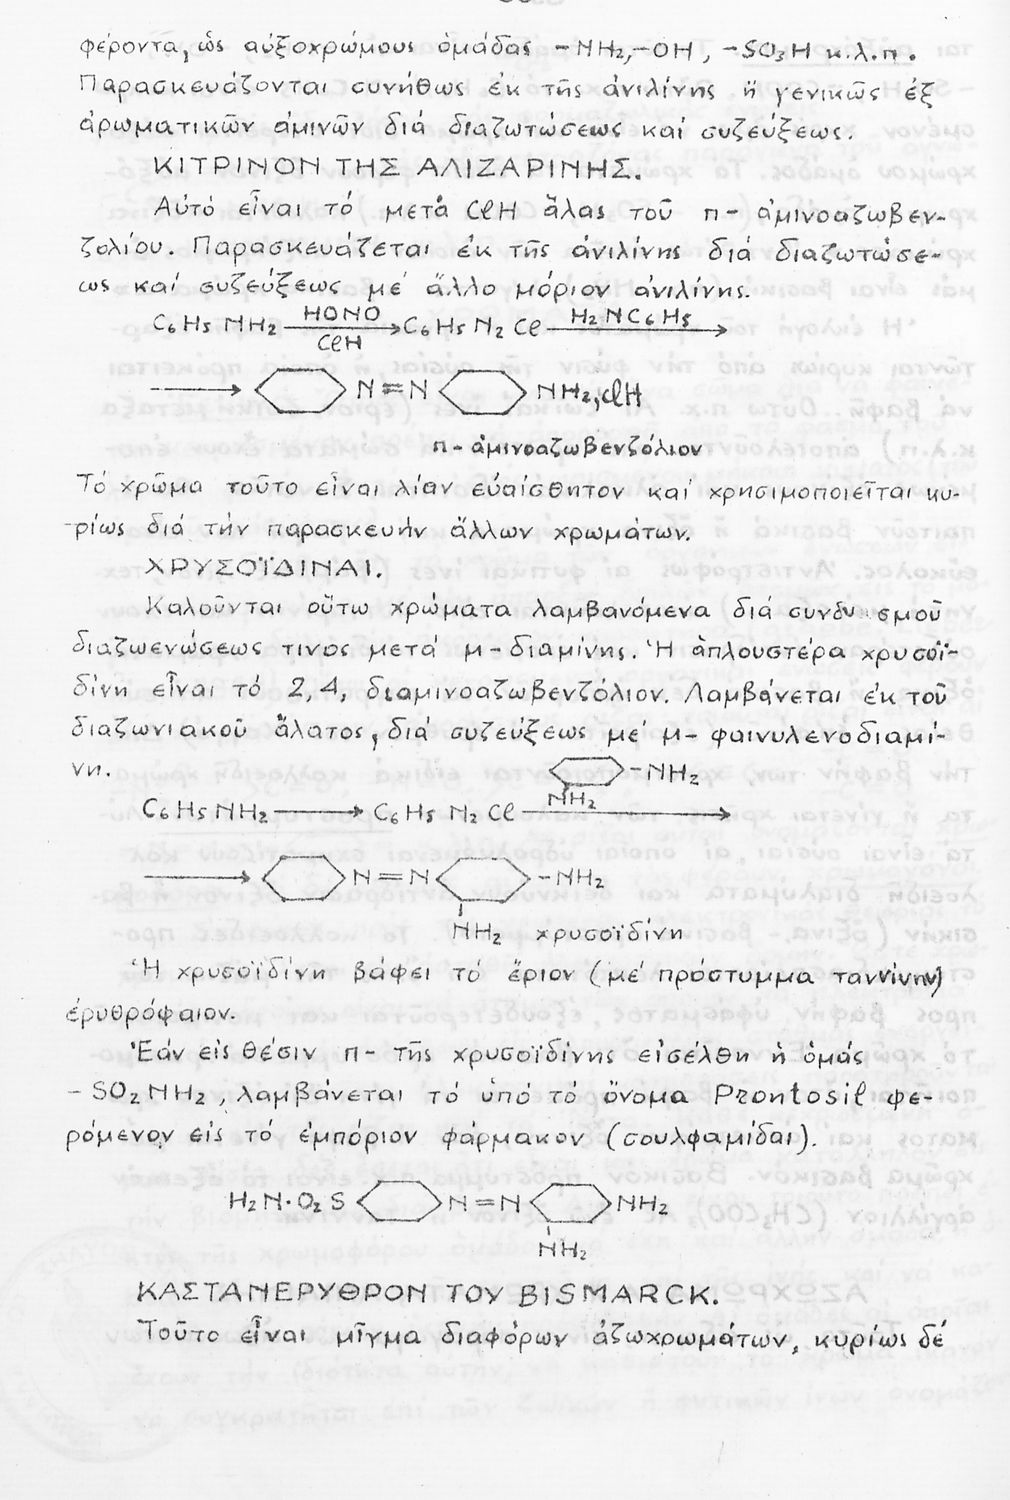 φέροντα, ὡς αὐξοχρώμους ὁμάδας -NH₂, -OH, -SO₃H κ.λ.π.
Παρασκευάζονται συνήθως ἐκ τῆς ἀνιλίνης ἤ γενικῶς ἐξ
ἀρωματικῶν ἀμινῶν διά διαζωτώσεως καί συζεύξεως.
ΚΙΤΡΙΝΟΝ ΤΗΣ ΑΛΙΖΑΡΙΝΗΣ.
Αὐτό εἶναι τό μετά ClH ἅλας τοῦ π-ἀμινοαζωβεν-
ζολίου. Παρασκευάζεται ἐκ τῆς ἀνιλίνης διά διαζωτώσε-
ως καί συζεύξεως μέ ἄλλο μόριον ἀνιλίνης.
C₆H₅NH₂ HONO ClH C₆H₅N₂Cl H₂NC₆H₅
N=N NH₂,ClH
π-ἀμινοαζωβενζόλιον
Τό χρῶμα τοῦτο εἶναι λίαν εὐαίσθητον καί χρησιμοποιεῖται κυ-
ρίως διά τήν παρασκευήν ἄλλων χρωμάτων.
ΧΡΥΣΟΪΔΙΝΑΙ.
Καλοῦνται οὕτω χρώματα λαμβανόμενα διά συνδυασμοῦ
διαζωενώσεως τινος μετά μ-διαμίνης. Ἡ ἁπλουστέρα χρυσοϊ-
δίνη εἶναι τό 2,4, διαμινοαζωβενζόλιον. Λαμβάνεται ἐκ τοῦ
διαζωνιακοῦ ἅλατος, διά συζεύξεως μέ μ-φαινυλενοδιαμί-
νη.
-NH₂
C₆H₅NH₂ C₆H₅N₂Cl NH₂
N=N -NH₂
NH₂ χρυσοϊδίνη
Ἡ χρυσοϊδίνη βάφει τό ἔριον (μέ πρόστυμμα ταννίνην)
ἐρυθρόφαιον.
Ἐάν εἰς θέσιν π- τῆς χρυσοϊδίνης εἰσέλθη ἡ ὁμάς
-SO₂NH₂, λαμβάνεται τό ὑπό τό ὄνομα Prontosil φε-
ρόμενον εἰς τό ἐμπόριον φάρμακον (σουλφαμίδαι).
H₂N·O₂S N=N NH₂
NH₂
ΚΑΣΤΑΝΕΡΥΘΡΟΝ ΤΟΥ BISMARCK.
Τοῦτο εἶναι μῖγμα διαφόρων ἀζωχρωμάτων, κυρίως δέ